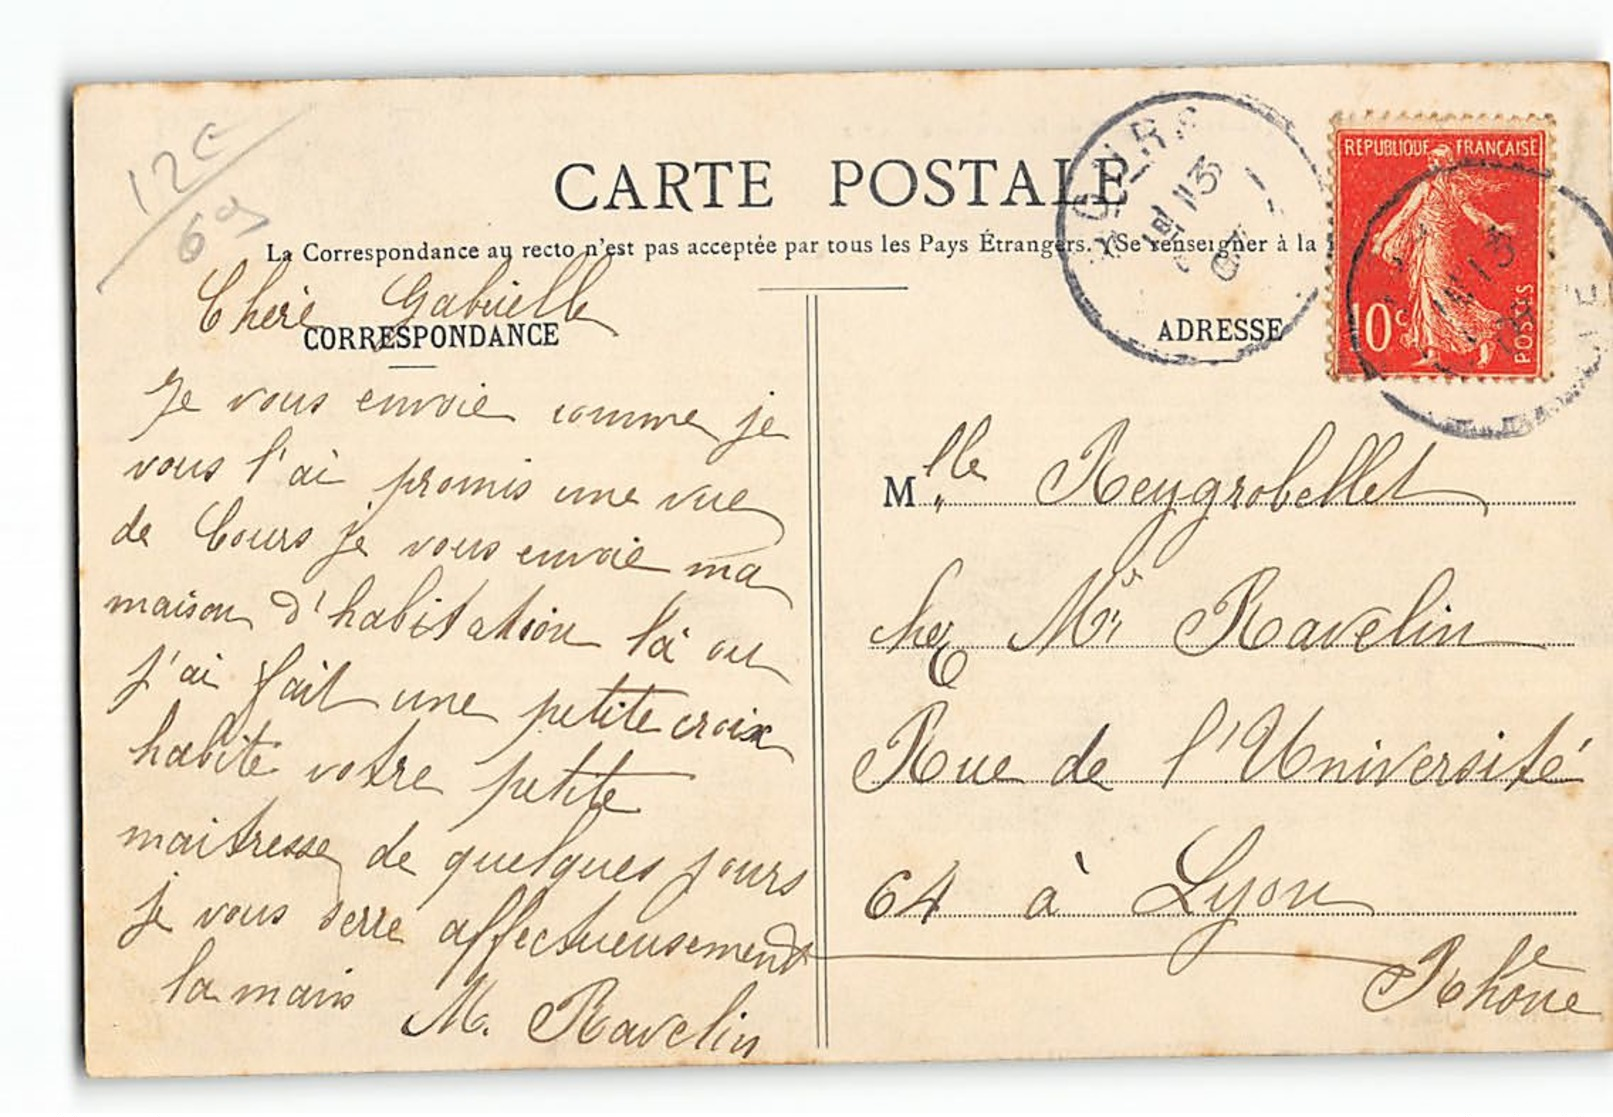 12€
CARTE POSTALE
La Correspondance au recto n'est pas acceptée par tous les Pays Étrangers. (Se renseigner à la
CORRESPONDANCE
Chère Gabrielle
Je vous envoie comme je
vous l'ai promis une vue
de Cours je vous envoie ma
maison d'habitation là ou
j'ai fait une petite croix
habite votre petite
maitresse de quelques jours
je vous serre affectueusement
la main
M. Ravelin
COURS
13
REPUBLIQUE FRANÇAISE
10c
POSTES
13
ADRESSE
Mlle Reygrobellet
chez Mr Ravelin
Rue de l'Université
64 à Lyon
Rhône